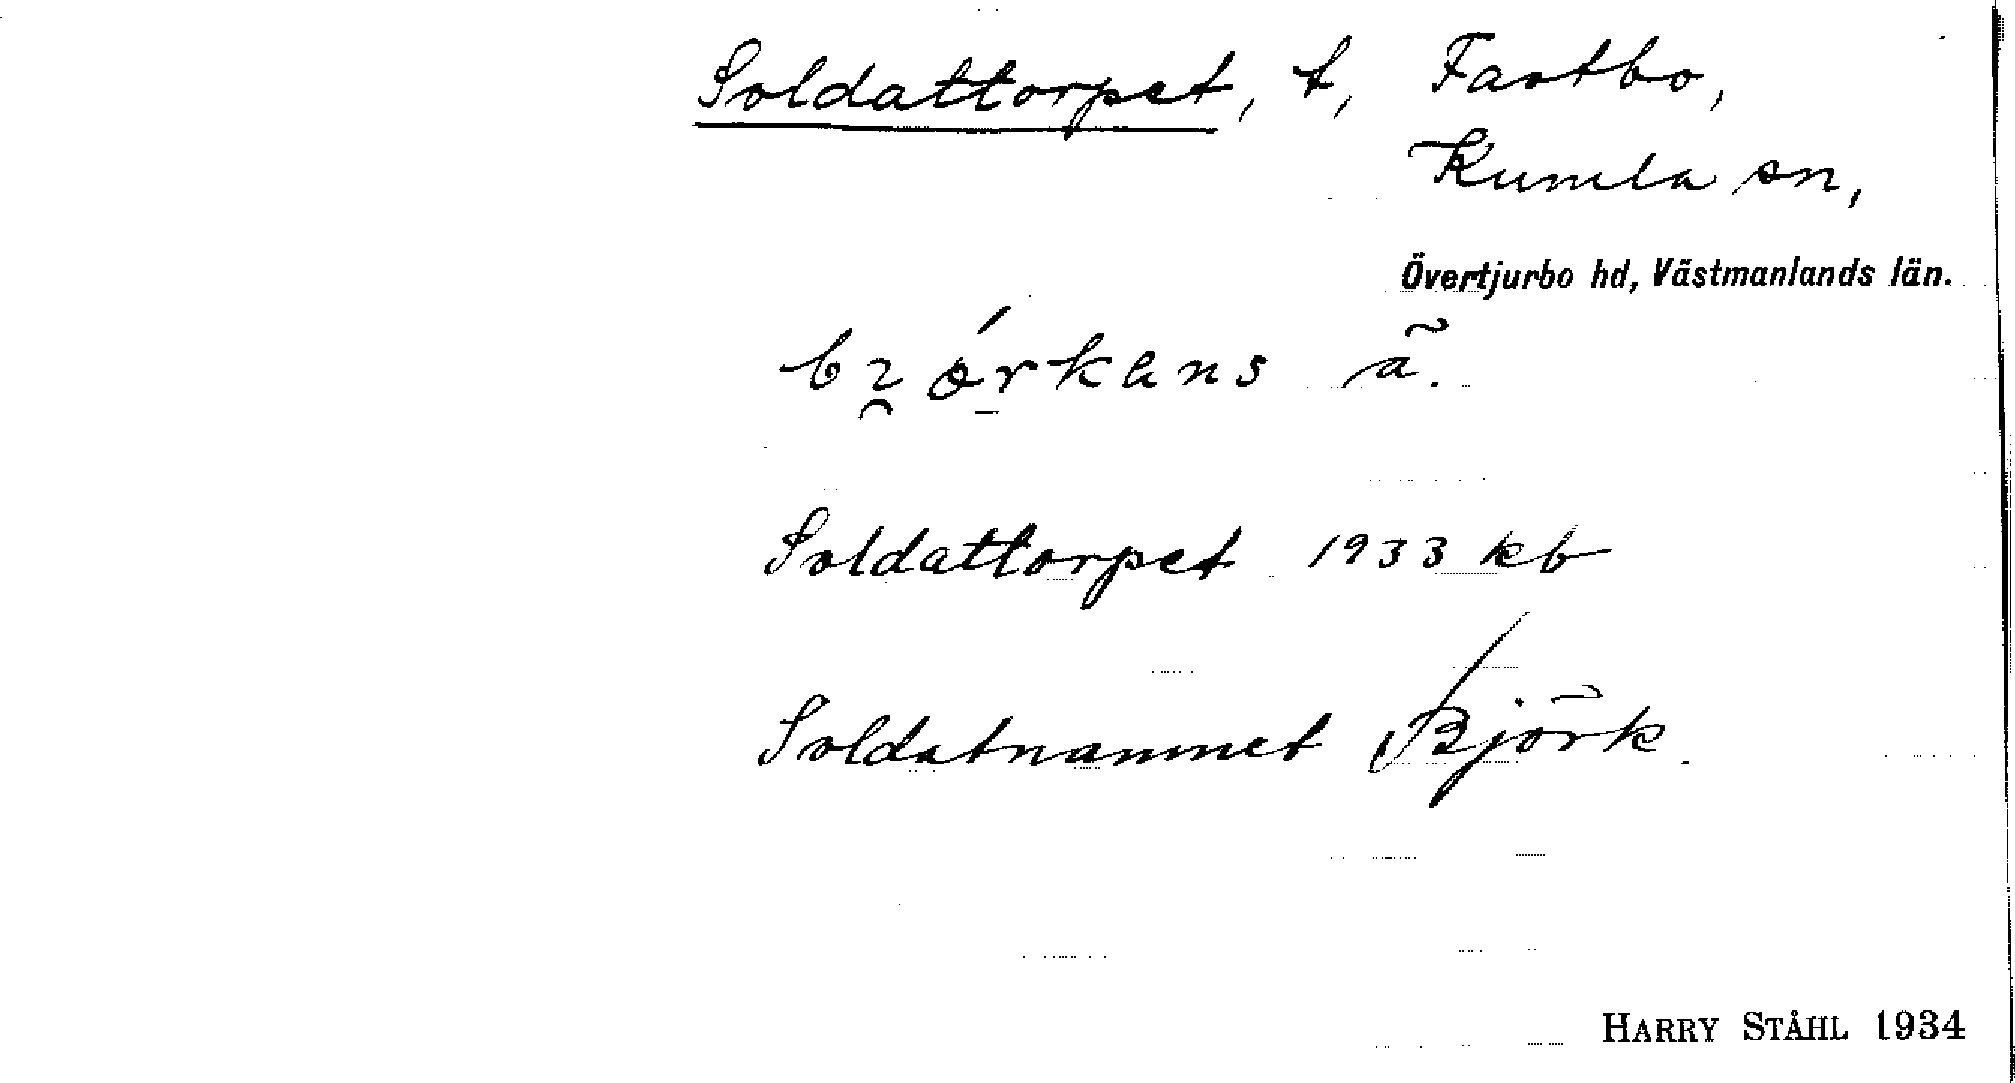 Soldattorpet, t, Fastbo,
Kumla sn,
Övertjurbo hd, Västmanlands län.
ã.
Soldattorpet 1933 kb
Soldatnamnet Björk.
HARRY STÅHL 1934